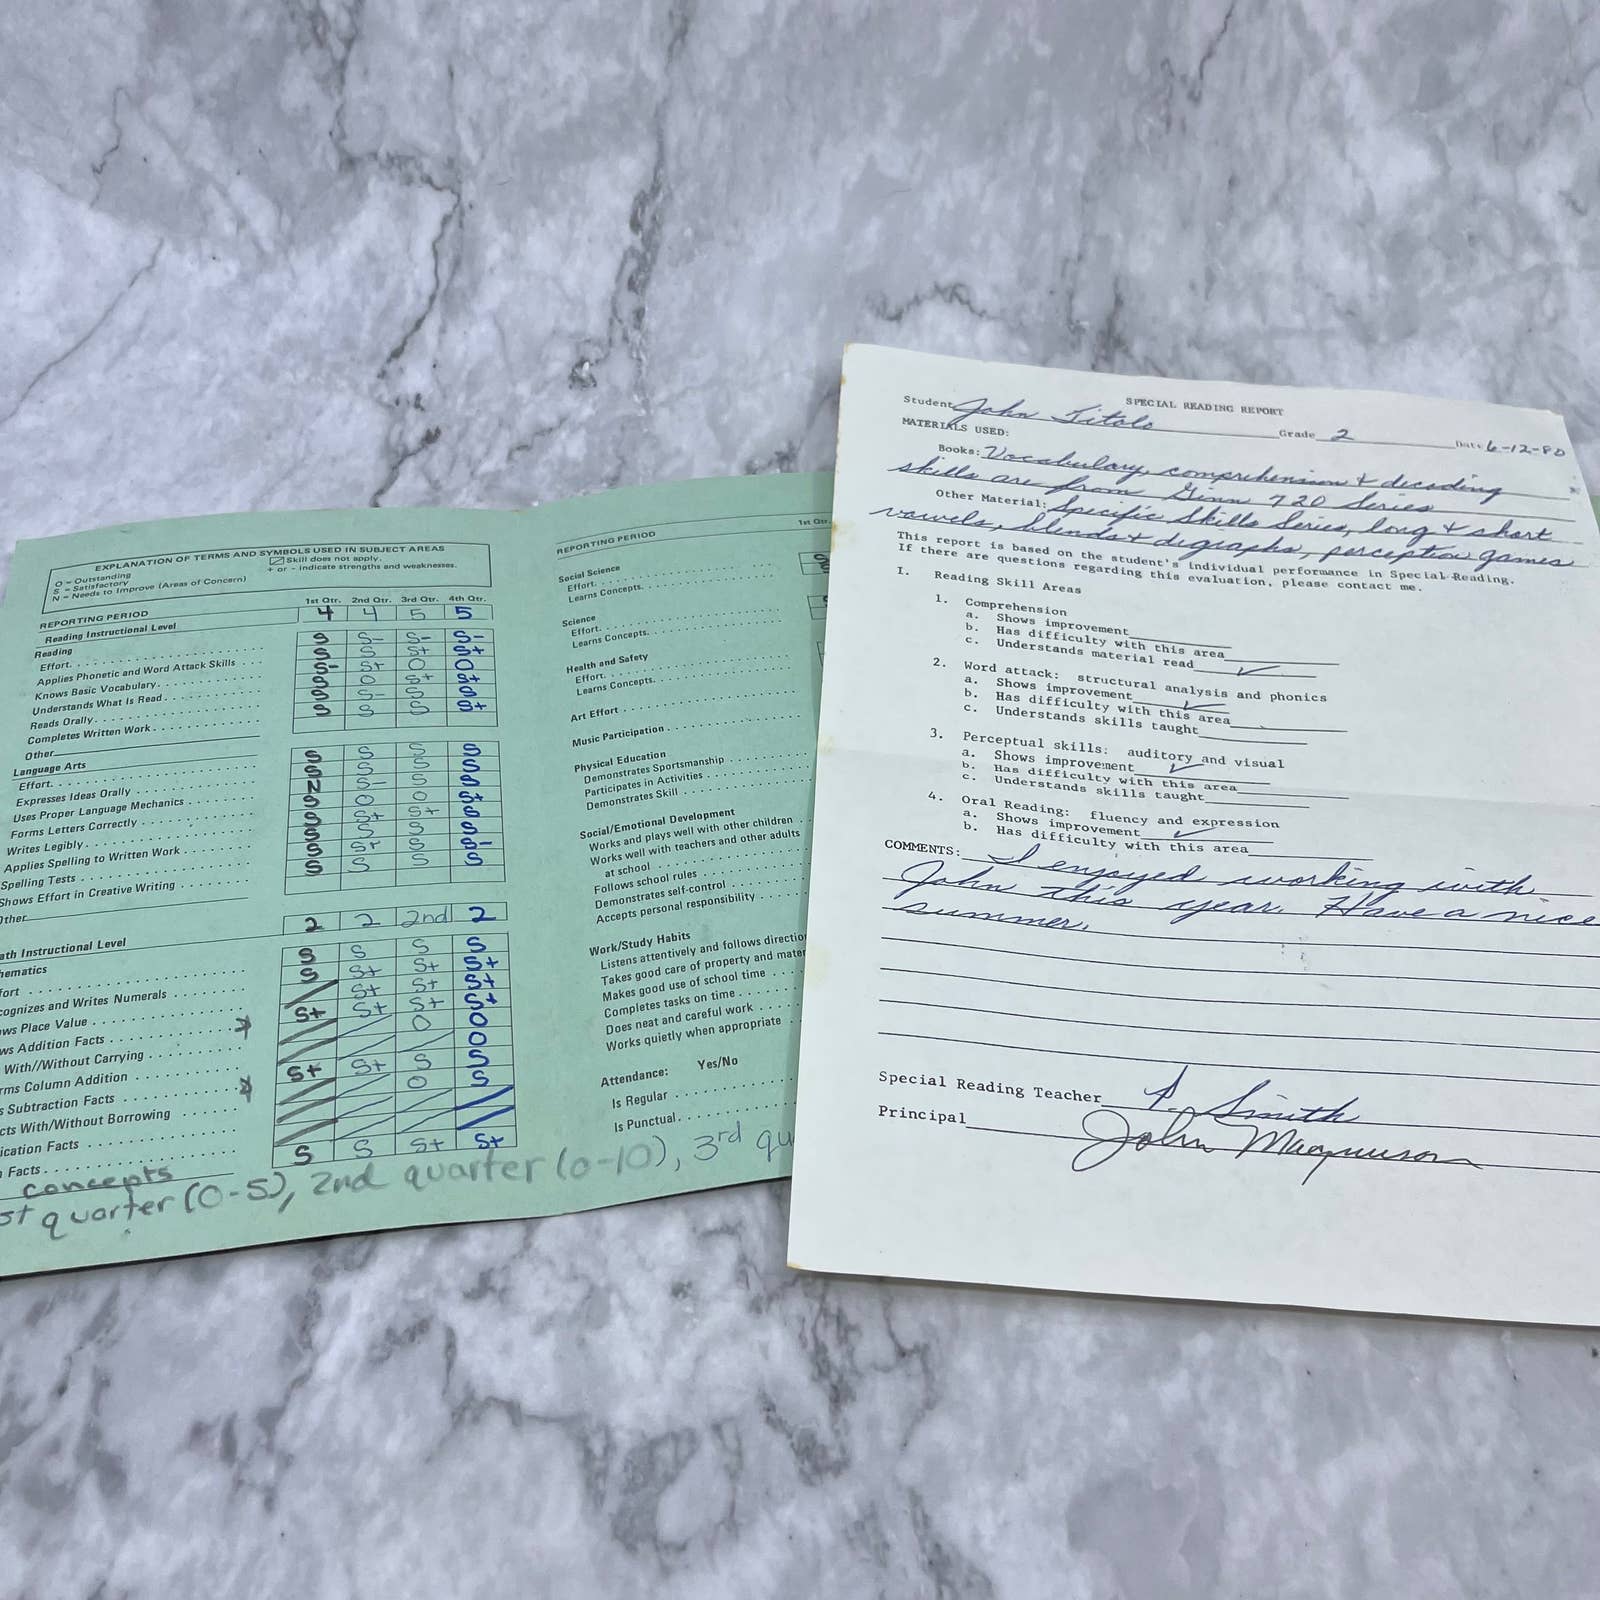 EXPLANATION OF TERMS AND SYMBOLS USED IN SUBJECT AREAS
O = Outstanding
S = Satisfactory
N = Needs to Improve (Areas of Concern)
Skill does not apply.
+ or - indicate strengths and weaknesses.
REPORTING PERIOD 1st Qtr. 2nd Qtr. 3rd Qtr. 4th Qtr.
Reading Instructional Level 4 4 5 5
Reading
Effort
Applies Phonetic and Word Attack Skills
Knows Basic Vocabulary
Understands What Is Read
Reads Orally
Completes Written Work
Other
S S- S- S-
S S S+ S+
S- S+ O O
S O S+ S+
S S- S S
S S S S+
Language Arts
Effort
Expresses Ideas Orally
Uses Proper Language Mechanics
Forms Letters Correctly
Writes Legibly
Applies Spelling to Written Work
Spelling Tests
Shows Effort in Creative Writing
Other
S S S S
S S S S
N S- S S
S O O S+
S S+ S+ S
S S S S
S S+ S S-
S S S S
ath Instructional Level 2 2 2nd 2
hematics
fort
cognizes and Writes Numerals
ws Place Value
ws Addition Facts
With//Without Carrying
rms Column Addition
s Subtraction Facts
cts With/Without Borrowing
ication Facts
n Facts
S S S S
S S+ S+ S+
S+ S+ S+
S+ S+ S+ S+
O O
O
S+ S+ S S
O S
S S S+ S+
concepts
st quarter (0-5), 2nd quarter (0-10), 3rd qu
REPORTING PERIOD 1st Qtr.
Social Science
Effort
Learns Concepts
Science
Effort
Learns Concepts
Health and Safety
Effort
Learns Concepts
Art Effort
Music Participation
Physical Education
Demonstrates Sportsmanship
Participates in Activities
Demonstrates Skill
Social/Emotional Development
Works and plays well with other children
Works well with teachers and other adults
at school
Follows school rules
Demonstrates self-control
Accepts personal responsibility
Work/Study Habits
Listens attentively and follows directio
Takes good care of property and mater
Makes good use of school time
Completes tasks on time
Does neat and careful work
Works quietly when appropriate
Attendance: Yes/No
Is Regular
Is Punctual
SPECIAL READING REPORT
Student John Titolo Grade 2 Date 6-12-80
MATERIALS USED:
Books: Vocabulary, comprehension & decoding
skills are from Ginn 720 Series
Other Material: Specific Skills Series, long & short
vowels, blends & digraphs, perception games
This report is based on the student's individual performance in Special Reading.
If there are questions regarding this evaluation, please contact me.
I. Reading Skill Areas
1. Comprehension
a. Shows improvement
b. Has difficulty with this area
c. Understands material read ✓
2. Word attack: structural analysis and phonics
a. Shows improvement ✓
b. Has difficulty with this area
c. Understands skills taught
3. Perceptual skills: auditory and visual
a. Shows improvement ✓
b. Has difficulty with this area
c. Understands skills taught
4. Oral Reading: fluency and expression
a. Shows improvement ✓
b. Has difficulty with this area
COMMENTS: I enjoyed working with
John this year. Have a nice
summer.
Special Reading Teacher P. Smith
Principal John Magnuson